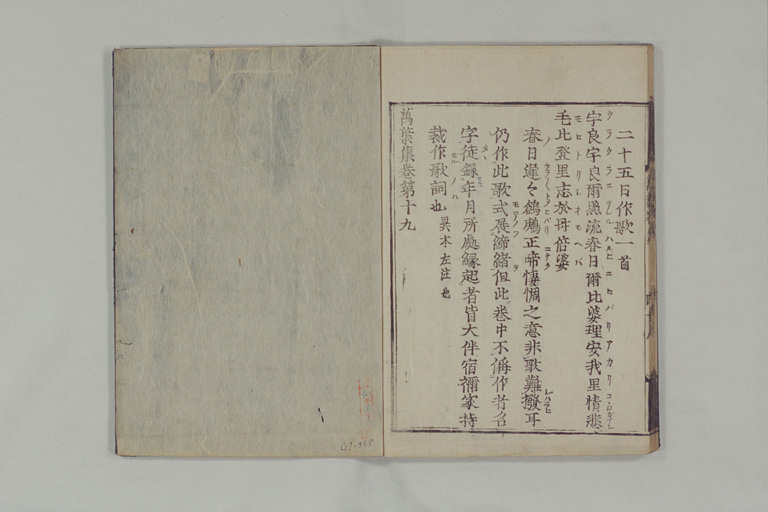 二十五日作歌一首
宇良宇良爾照流春日爾比婆理安我里情悲
毛比登里志於母倍婆
春日遲々鶬鶊正啼悽惆之意非歌難撥耳
仍作此歌式展締緒但此巻中不偁作者名
字徒録年月所處縁起者皆大伴宿禰家持
裁作歌詞也 異本左注也
萬葉集巻第十九